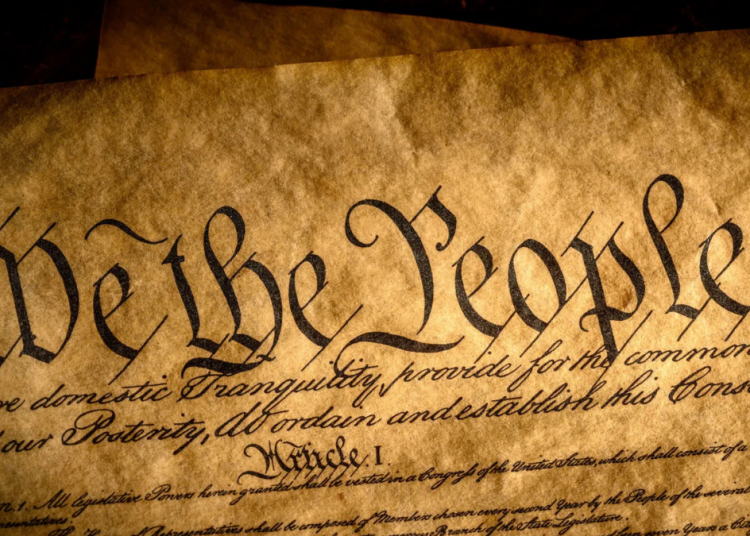 We the People
re domestic Tranquility, provide for the common
our Posterity, do ordain and establish this Cons
Article. I.
n. 1. All legislative Powers herein granted shall be vested in a Congress of the United States, which shall consist of a
Representatives shall be composed of Members chosen every second Year by the People of the several
Branch of the State Legislature.